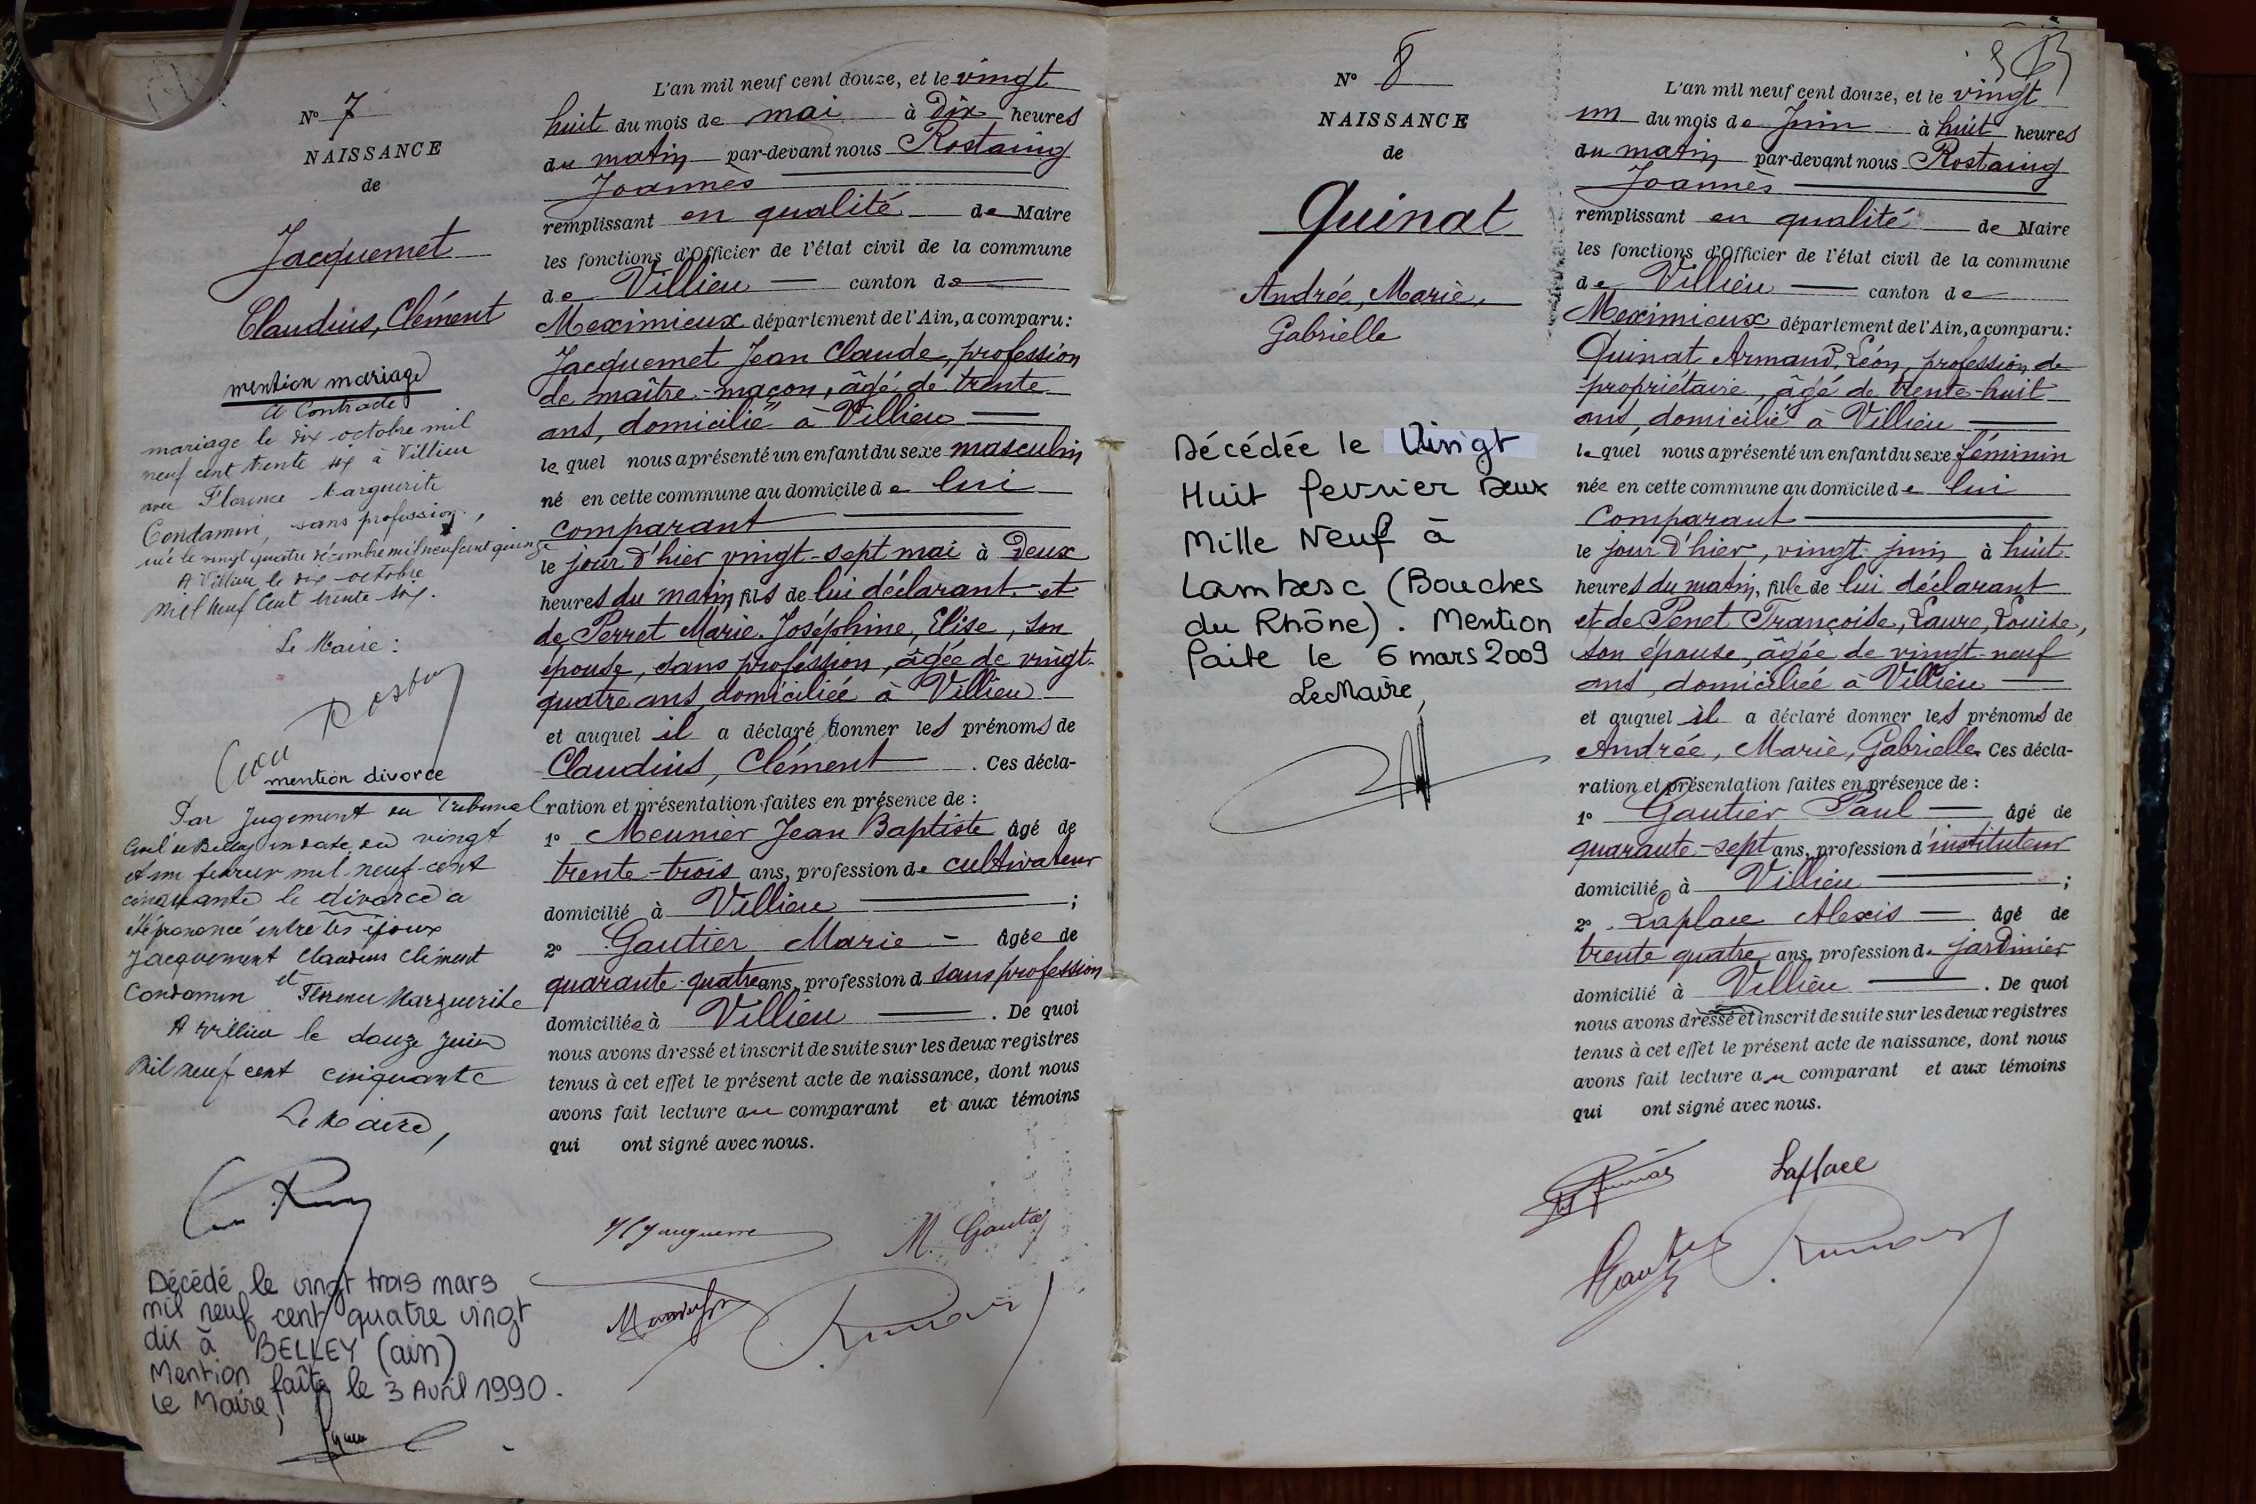 N° 7
NAISSANCE
de
Jacquemet
Claudius, Clément
mention mariage
A Contracté
mariage le dix octobre mil
neuf cent trente six à Villieu
avec Florence Marguerite
Condamin, sans profession,
née le vingt quatre décembre mil neuf cent quinze
A Villieu le dix octobre
mil neuf cent trente-six.
Le Maire :
mention divorce
Par Jugement du Tribunal
Civil de Belley en date du vingt
et un février mil neuf-cent
cinquante le divorce a
été prononcé entre les époux
Jacquement Claudius Clément
et
Condamin Florence Marguerite
A Villieu le douze juin
Mil neuf cent cinquante
Le Maire,
Décédé le vingt trois mars
mil neuf cent quatre vingt
dix à BELLEY (ain)
Mention faîte le 3 Avril 1990.
Le Maire,
L'an mil neuf cent douze, et le vingt
huit du mois de mai à Dix heures
du matin par-devant nous Rostaing
Joannès
remplissant en qualité de Maire
les fonctions d'Officier de l'état civil de la commune
de Villieu canton de
Meximieux département de l'Ain, a comparu :
Jacquemet Jean Claude, profession
de maître-maçon, âgé de trente
ans, domicilié à Villieu
lequel nous a présenté un enfant du sexe masculin
né en cette commune au domicile de lui
comparant
le jour d'hier vingt-sept mai à Deux
heures du matin fils de lui déclarant et
de Perret Marie Joséphine, Elise, son
épouse, sans profession, âgée de vingt-
quatre ans, domiciliée à Villieu
et auquel il a déclaré donner les prénoms de
Claudius, Clément . Ces décla-
ration et présentation faites en présence de :
1° Meunier Jean Baptiste âgé de
trente-trois ans, profession de cultivateur
domicilié à Villieu ;
2° Gautier Marie - âgée de
quarante-quatre ans, profession d sans profession
domiciliée à Villieu . De quoi
nous avons dressé et inscrit de suite sur les deux registres
tenus à cet effet le présent acte de naissance, dont nous
avons fait lecture au comparant et aux témoins
qui ont signé avec nous.
M. Gautier
N° 8
NAISSANCE
de
Quinat
Andrée, Marie,
Gabrielle
Décédée le Vingt
Huit février Deux
Mille Neuf à
Lambesc (Bouches
du Rhône). Mention
faite le 6 mars 2009
Le Maire,
L'an mil neuf cent douze, et le vingt
un du mois de Juin à huit heures
du matin par-devant nous Rostaing
Joannès
remplissant en qualité de Maire
les fonctions d'Officier de l'état civil de la commune
de Villieu canton de
Meximieux département de l'Ain, a comparu :
Quinat Armand, Léon, profession de
propriétaire, âgé de trente-huit
ans, domicilié à Villieu
lequel nous a présenté un enfant du sexe féminin
née en cette commune au domicile de lui
comparant
le jour d'hier, vingt juin à huit
heures du matin, fille de lui déclarant
et de Penet Françoise, Laure, Louise,
son épouse, âgée de vingt-neuf
ans, domiciliée à Villieu
et auquel il a déclaré donner les prénoms de
Andrée, Marie, Gabrielle. Ces décla-
ration et présentation faites en présence de :
1° Gautier Paul âgé de
quarante-sept ans, profession d'instituteur
domicilié à Villieu ;
2° Laplace Alexis âgé de
trente quatre ans, profession de jardinier
domicilié à Villieu . De quoi
nous avons dressé et inscrit de suite sur les deux registres
tenus à cet effet le présent acte de naissance, dont nous
avons fait lecture au comparant et aux témoins
qui ont signé avec nous.
Laplace
Gautier